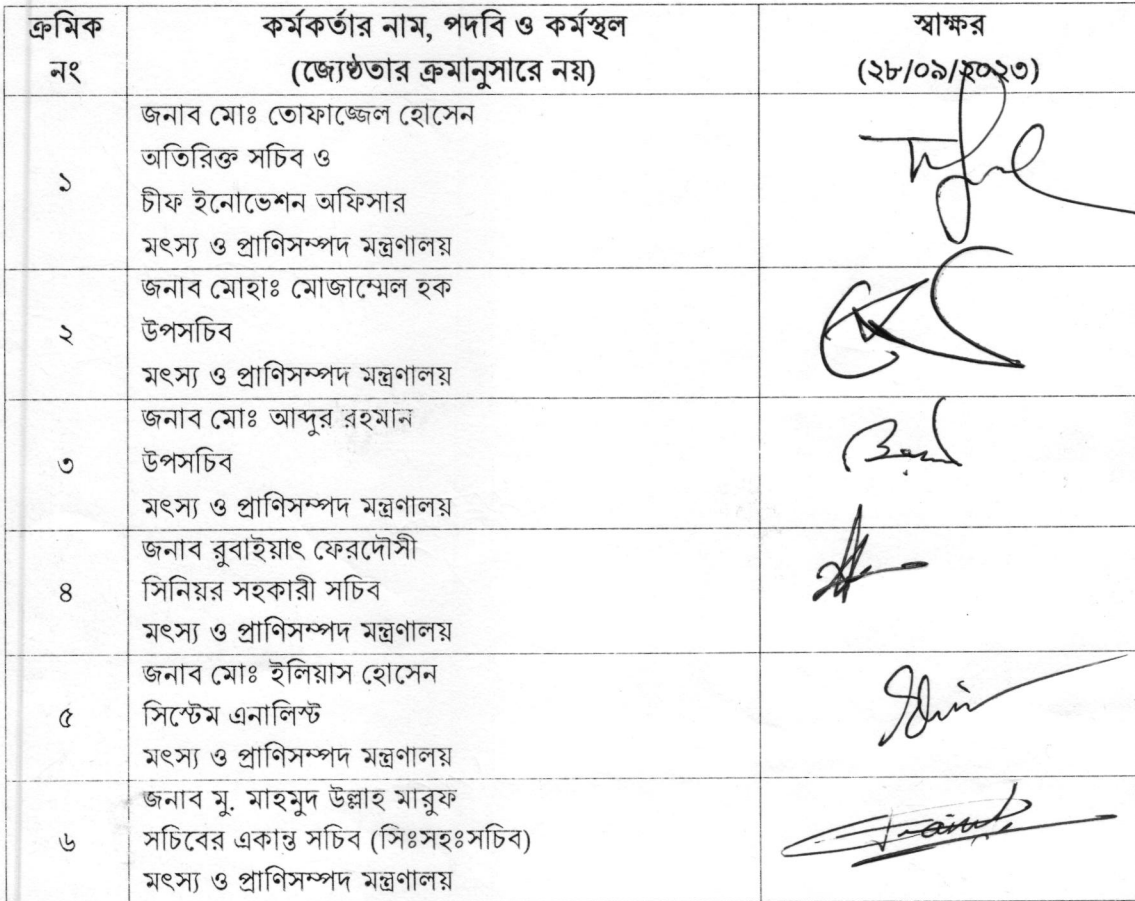 ক্রমিক নং
কর্মকর্তার নাম, পদবি ও কর্মস্থল
(জ্যেষ্ঠতার ক্রমানুসারে নয়)
স্বাক্ষর
(২৮/০৯/২০২৩)
১
জনাব মোঃ তোফাজ্জেল হোসেন
অতিরিক্ত সচিব ও
চীফ ইনোভেশন অফিসার
মৎস্য ও প্রাণিসম্পদ মন্ত্রণালয়
২
জনাব মোহাঃ মোজাম্মেল হক
উপসচিব
মৎস্য ও প্রাণিসম্পদ মন্ত্রণালয়
৩
জনাব মোঃ আব্দুর রহমান
উপসচিব
মৎস্য ও প্রাণিসম্পদ মন্ত্রণালয়
৪
জনাব রুবাইয়াৎ ফেরদৌসী
সিনিয়র সহকারী সচিব
মৎস্য ও প্রাণিসম্পদ মন্ত্রণালয়
৫
জনাব মোঃ ইলিয়াস হোসেন
সিস্টেম এনালিস্ট
মৎস্য ও প্রাণিসম্পদ মন্ত্রণালয়
৬
জনাব মু. মাহমুদ উল্লাহ মারুফ
সচিবের একান্ত সচিব (সিঃসহঃসচিব)
মৎস্য ও প্রাণিসম্পদ মন্ত্রণালয়